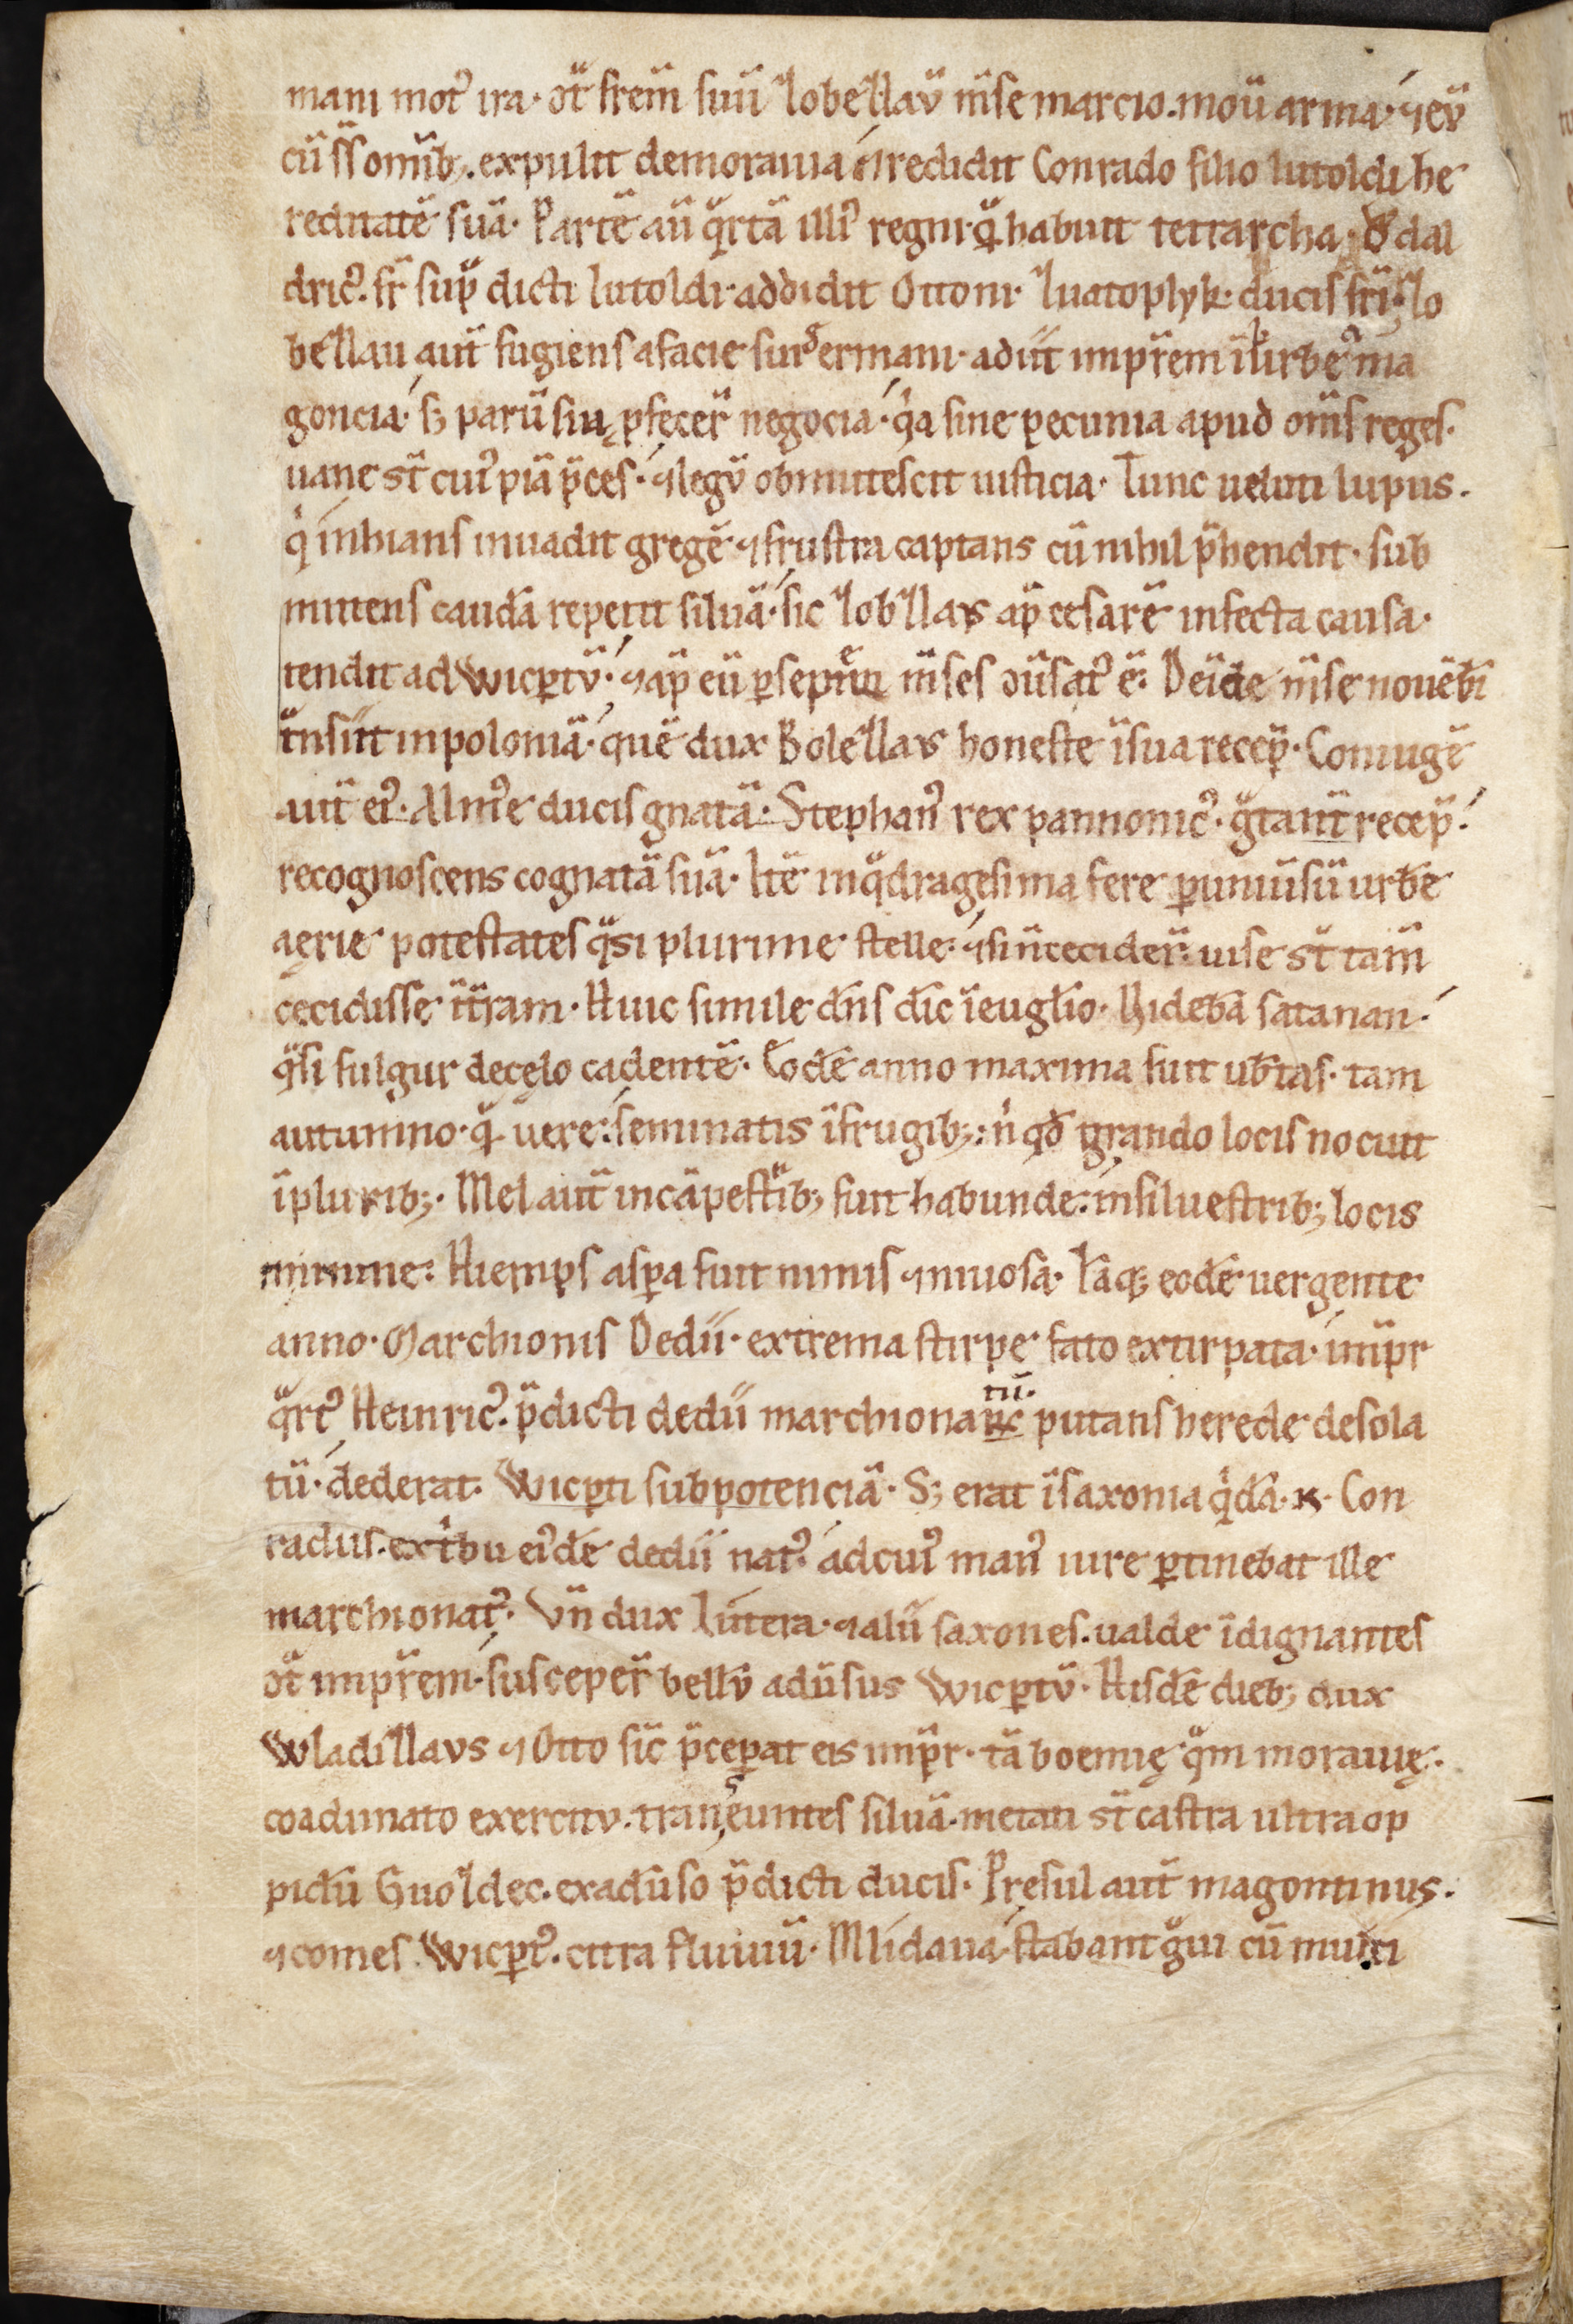 mani mot᾽ ira· ot̄ frem̄ suū Sobeslav̄ m̄se marcio. mov̄ arma· ⁊ ev̄
cū s̄s omīb;. expulit demorauia ⁊ reddidit Conrado filio lutoldi he
reditatē suā· Partē aū q̄rtā illi᾽ regni· q̄ habuit tetrarcha· Ŏdal
dric᾽. fr̄ sup̄ dicti lutoldi· addidit Ottoni· Suatoplyk· ducis fr̄i· So
beslau aut̄ fugiens afacie sui germani· adiit imp̄rem̄ ī urbe ma
goncia· s; parū sua p̱fecer̄ negocia· q̇a sine pecunia apud om̄s reges·
uane st̄ cui᾽piā p̄ces· ⁊ legv̄ obmutescit iusticia· Tunc veluti lupus.
q̇ inhians inuadit gregē· ⁊ frustra captans cū nihil p̄hendit· sub
mittens caudā repetit siluā· sic Sobeslavs ap̄ cesarē infecta causa·
tendit ad Wicp̱tv̄· ⁊ ap̄ eū p̱ septē m̄ses ꝯūsat᾽ ē· Deīde m̄se nouēb̄i
t̄nsiit in poloniā· quē dux Boleslavs honeste īsua recep̄· Coniugē
aut̄ ei᾽· Alm᾽e ducis gnatā· Stephan᾽ rex pannonic᾽· gͣtant̄ recep̄·
recognoscens cognatā suā· Itē in q̄dragesima fere p̱ uniūsū urbē
aęrie potestates q̄si plurime stelle· ⁊ si n̄ cecider̄· uise st̄ tam̄
cecidisse īt̄ram· Huic simile dn̄s dic̄ īeuglīo· Videbā satanan·
q̄si fulgur decęlo cadentē· Eodē anno maxima fuit ub̄tas· tam
autumno· q̄ uere· seminatis ī frugib;· n̍ qd̄ grando locis nocuit
īplurib;· Mel aut̄ in cāpestrib; fuit habunde· in siluestrib; locis
minime· Hiemps asp̱a fuit nimis ⁊ niuosa· Iāq; eodē uergente
anno· Marchionis Dedii· extrema stirpe fato extirpata· imp̄r
q̄rt᾽ Heinric᾽· p̄dicti dedii marchionatū· putans herede desola
tū· dederat· Wicp̱ti sub potenciā· S; erat īsaxonia q̇dā· K· Con
radus· ex tribu ei᾽dē dedii nat᾽· ad cui᾽ man᾽ iure p̱tinebat ille
marchionat᾽· Vn̄ dux Lutera· ⁊ alii saxones· ualde īdignantes
ot̄ imp̄rem· susceper̄ bellv̄ adūsus Wicp̱tv̄· Hisdē dieb; dux
Wladislavs ⁊ Otto sic̄ p̄cep̱at eis imp̄r· tā boemię q̄m morauię·
coadunato exercitv· transeuntes siluā· metati st̄ castra ultra op
pidū Guozdec· ex adūso p̄dicti ducis· Pręsul aut̄ magontinus·
⁊ comes Wicp̱t᾽· citra fluuiū· Mlidaua· stabant gͣui cū multi